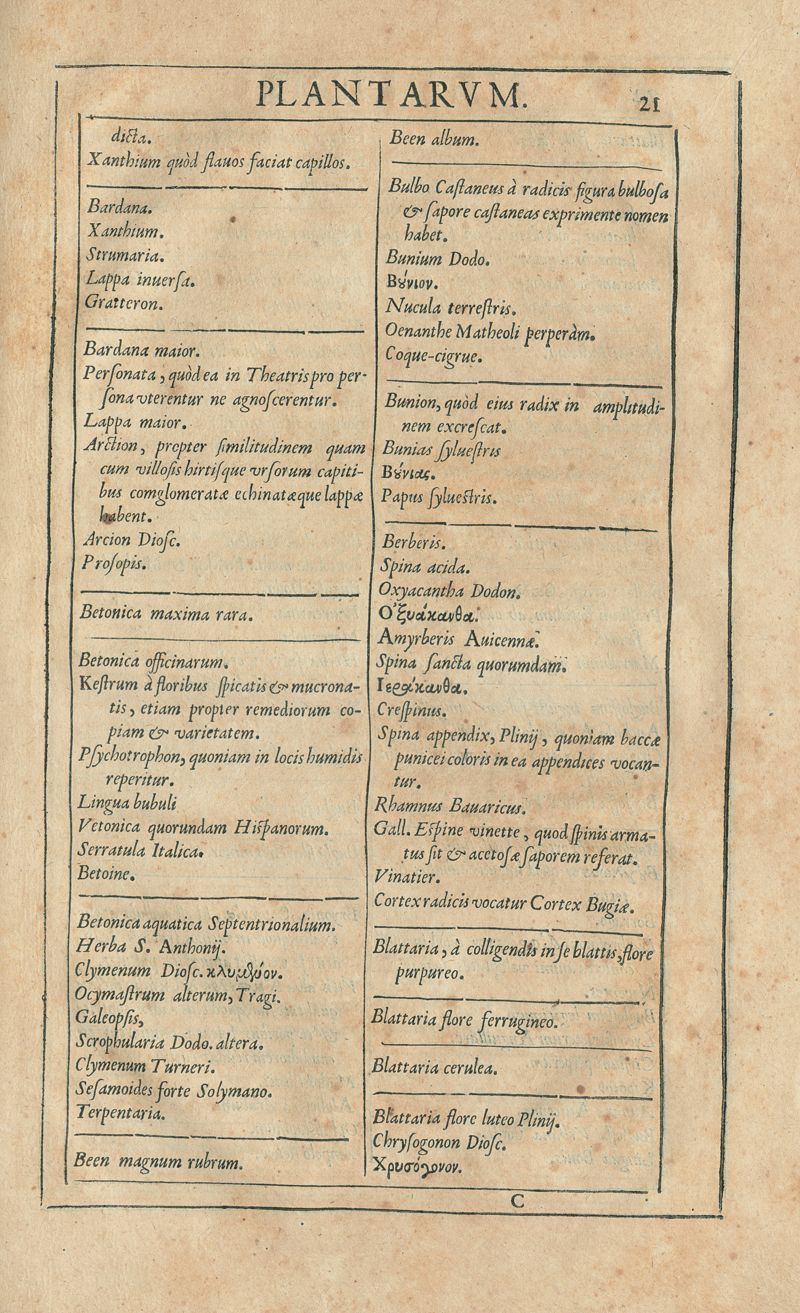 PLANTARVM. 21
dicta.
Xanthium quòd flauos faciat capillos.
Bardana.
Xanthium.
Strumaria.
Lappa inuerſa.
Gratteron.
Bardana maior.
Perſonata, quòd ea in Theatris pro per-
ſona vterentur ne agnoſcerentur.
Lappa maior.
Arction, propter ſimilitudinem quam
cum villoſis hirtiſque vrſorum capiti-
bus comglomeratæ echinatæque lappæ
habent.
Arcion Dioſc.
Proſopis.
Betonica maxima rara.
Betonica officinarum.
Keſtrum à floribus ſpicatis & mucrona-
tis, etiam propter remediorum co-
piam & varietatem.
Pſychotrophon, quoniam in locis humidis
reperitur.
Lingua bubuli
Vetonica quorundam Hiſpanorum.
Serratula Italica.
Betoine.
Betonica aquatica Septentrionalium.
Herba S. Anthonij.
Clymenum Dioſc. κλυμϑμον.
Ocymaſtrum alterum, Tragi.
Galeopſis,
Scrophularia Dodo. altera.
Clymenum Turneri.
Seſamoides forte Solymano.
Terpentaria.
Been magnum rubrum.
Been album.
Bulbo Caſtaneus à radicis figura bulboſa
& ſapore caſtaneas exprimente nomen
habet.
Bunium Dodo.
Βȣ́νιον.
Nucula terreſtris.
Oenanthe Matheoli perperàm.
Coque-cigrue.
Bunion, quòd eius radix in amplitudi-
nem excreſcat.
Bunias ſylueſtris
Βȣ́νιας.
Papus ſylueſtris.
Berberis.
Spina acida.
Oxyacantha Dodon.
Ὀξυάκανθα.
Amyrberis Auicennæ.
Spina ſancta quorumdam.
Ιεράκανθα.
Creſpinus.
Spina appendix, Plinij, quoniam baccæ
punicei coloris in ea appendices vocan-
tur.
Rhamnus Bauaricus.
Gall. Eſpine vinette, quod ſpinis arma-
tus ſit & acetoſæ ſaporem referat.
Vinatier.
Cortex radicis vocatur Cortex Bugiæ.
Blattaria, à colligendis in ſe blattis, flore
purpureo.
Blattaria flore ferrugineo.
Blattaria cerulea.
Blattaria flore luteo Plinij.
Chryſogonon Dioſc.
Χρυσόγονον.
C